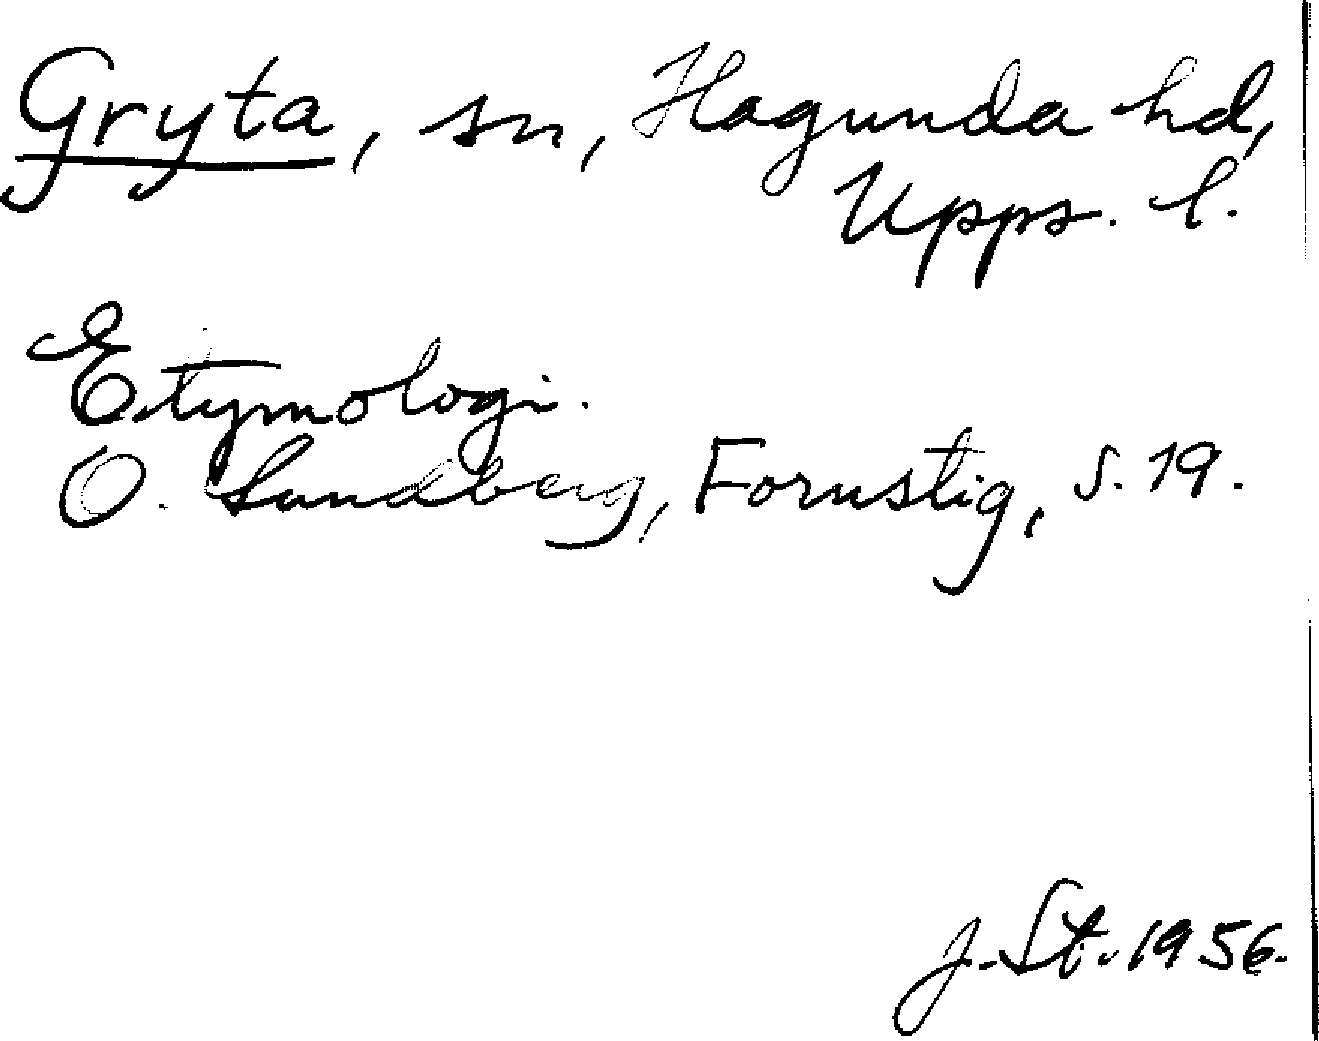 Gryta, sn, Hagunda hd,
Upps. l.
Etymologi.
O. Lundberg, Fornstig, s. 19.
J. St. 1956.